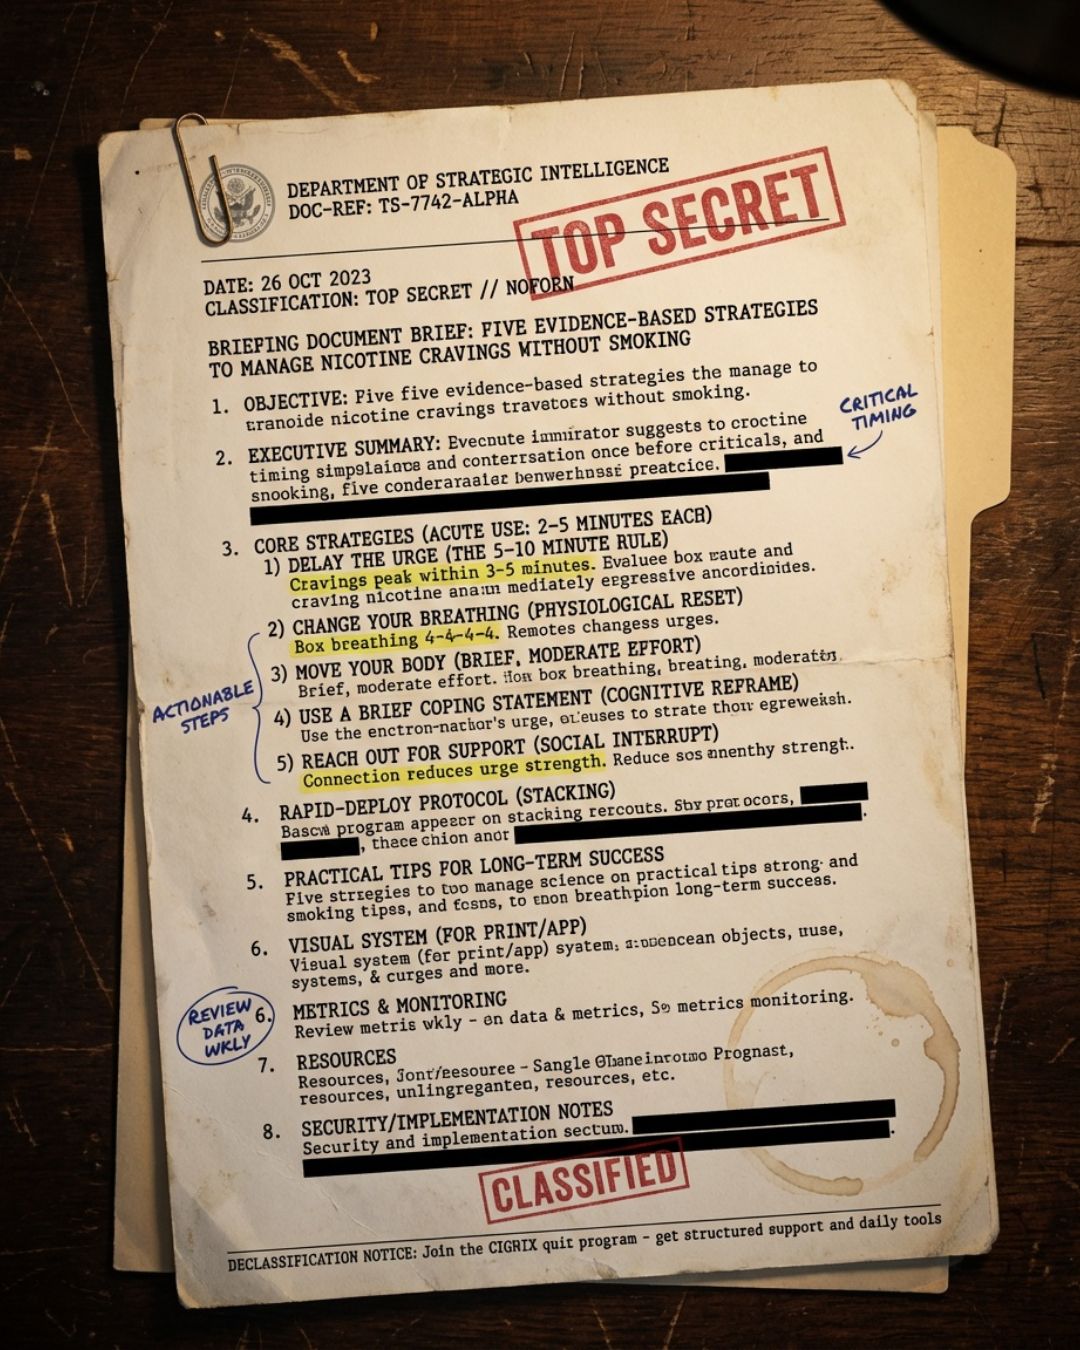 DEPARTMENT OF STRATEGIC INTELLIGENCE
DOC-REF: TS-7742-ALPHA
TOP SECRET
DATE: 26 OCT 2023
CLASSIFICATION: TOP SECRET // NOFORN
BRIEFING DOCUMENT BRIEF: FIVE EVIDENCE-BASED STRATEGIES
TO MANAGE NICOTINE CRAVINGS WITHOUT SMOKING
1. OBJECTIVE: Five five evidence-based strategies the manage to
nicotine cravings without smoking.
CRITICAL
TIMING
2. EXECUTIVE SUMMARY: suggests to
timing and once before criticals, and
snooking, five
3. CORE STRATEGIES (ACUTE USE: 2-5 MINUTES EACH)
1) DELAY THE URGE (THE 5-10 MINUTE RULE)
Cravings peak within 3-5 minutes. Evaluee box and
craving nicotine mediately
2) CHANGE YOUR BREATHING (PHYSIOLOGICAL RESET)
Box breathing 4-4-4-4. Remotes changess urges.
3) MOVE YOUR BODY (BRIEF, MODERATE EFFORT)
Brief, moderate effort. box breathing, breating,
ACTIONABLE
STEPS
4) USE A BRIEF COPING STATEMENT (COGNITIVE REFRAME)
Use the urge, to strate
5) REACH OUT FOR SUPPORT (SOCIAL INTERRUPT)
Connection reduces urge strength. Reduce
4. RAPID-DEPLOY PROTOCOL (STACKING)
program on stacking
5. PRACTICAL TIPS FOR LONG-TERM SUCCESS
Five to manage science on practical tips strong- and
smoking tipss, and to long-term success.
6. VISUAL SYSTEM (FOR PRINT/APP)
Visual system (for print/app) system, objects,
systems, & curges and more.
REVIEW
DATA
WKLY
6. METRICS & MONITORING
Review metris wkly - on data & metrics, metrics monitoring.
7. RESOURCES
Resources, - Sangle Prognast,
resources, resources, etc.
8. SECURITY/IMPLEMENTATION NOTES
Security and implementation
CLASSIFIED
DECLASSIFICATION NOTICE: Join the CIGRIX quit program - get structured support and daily tools